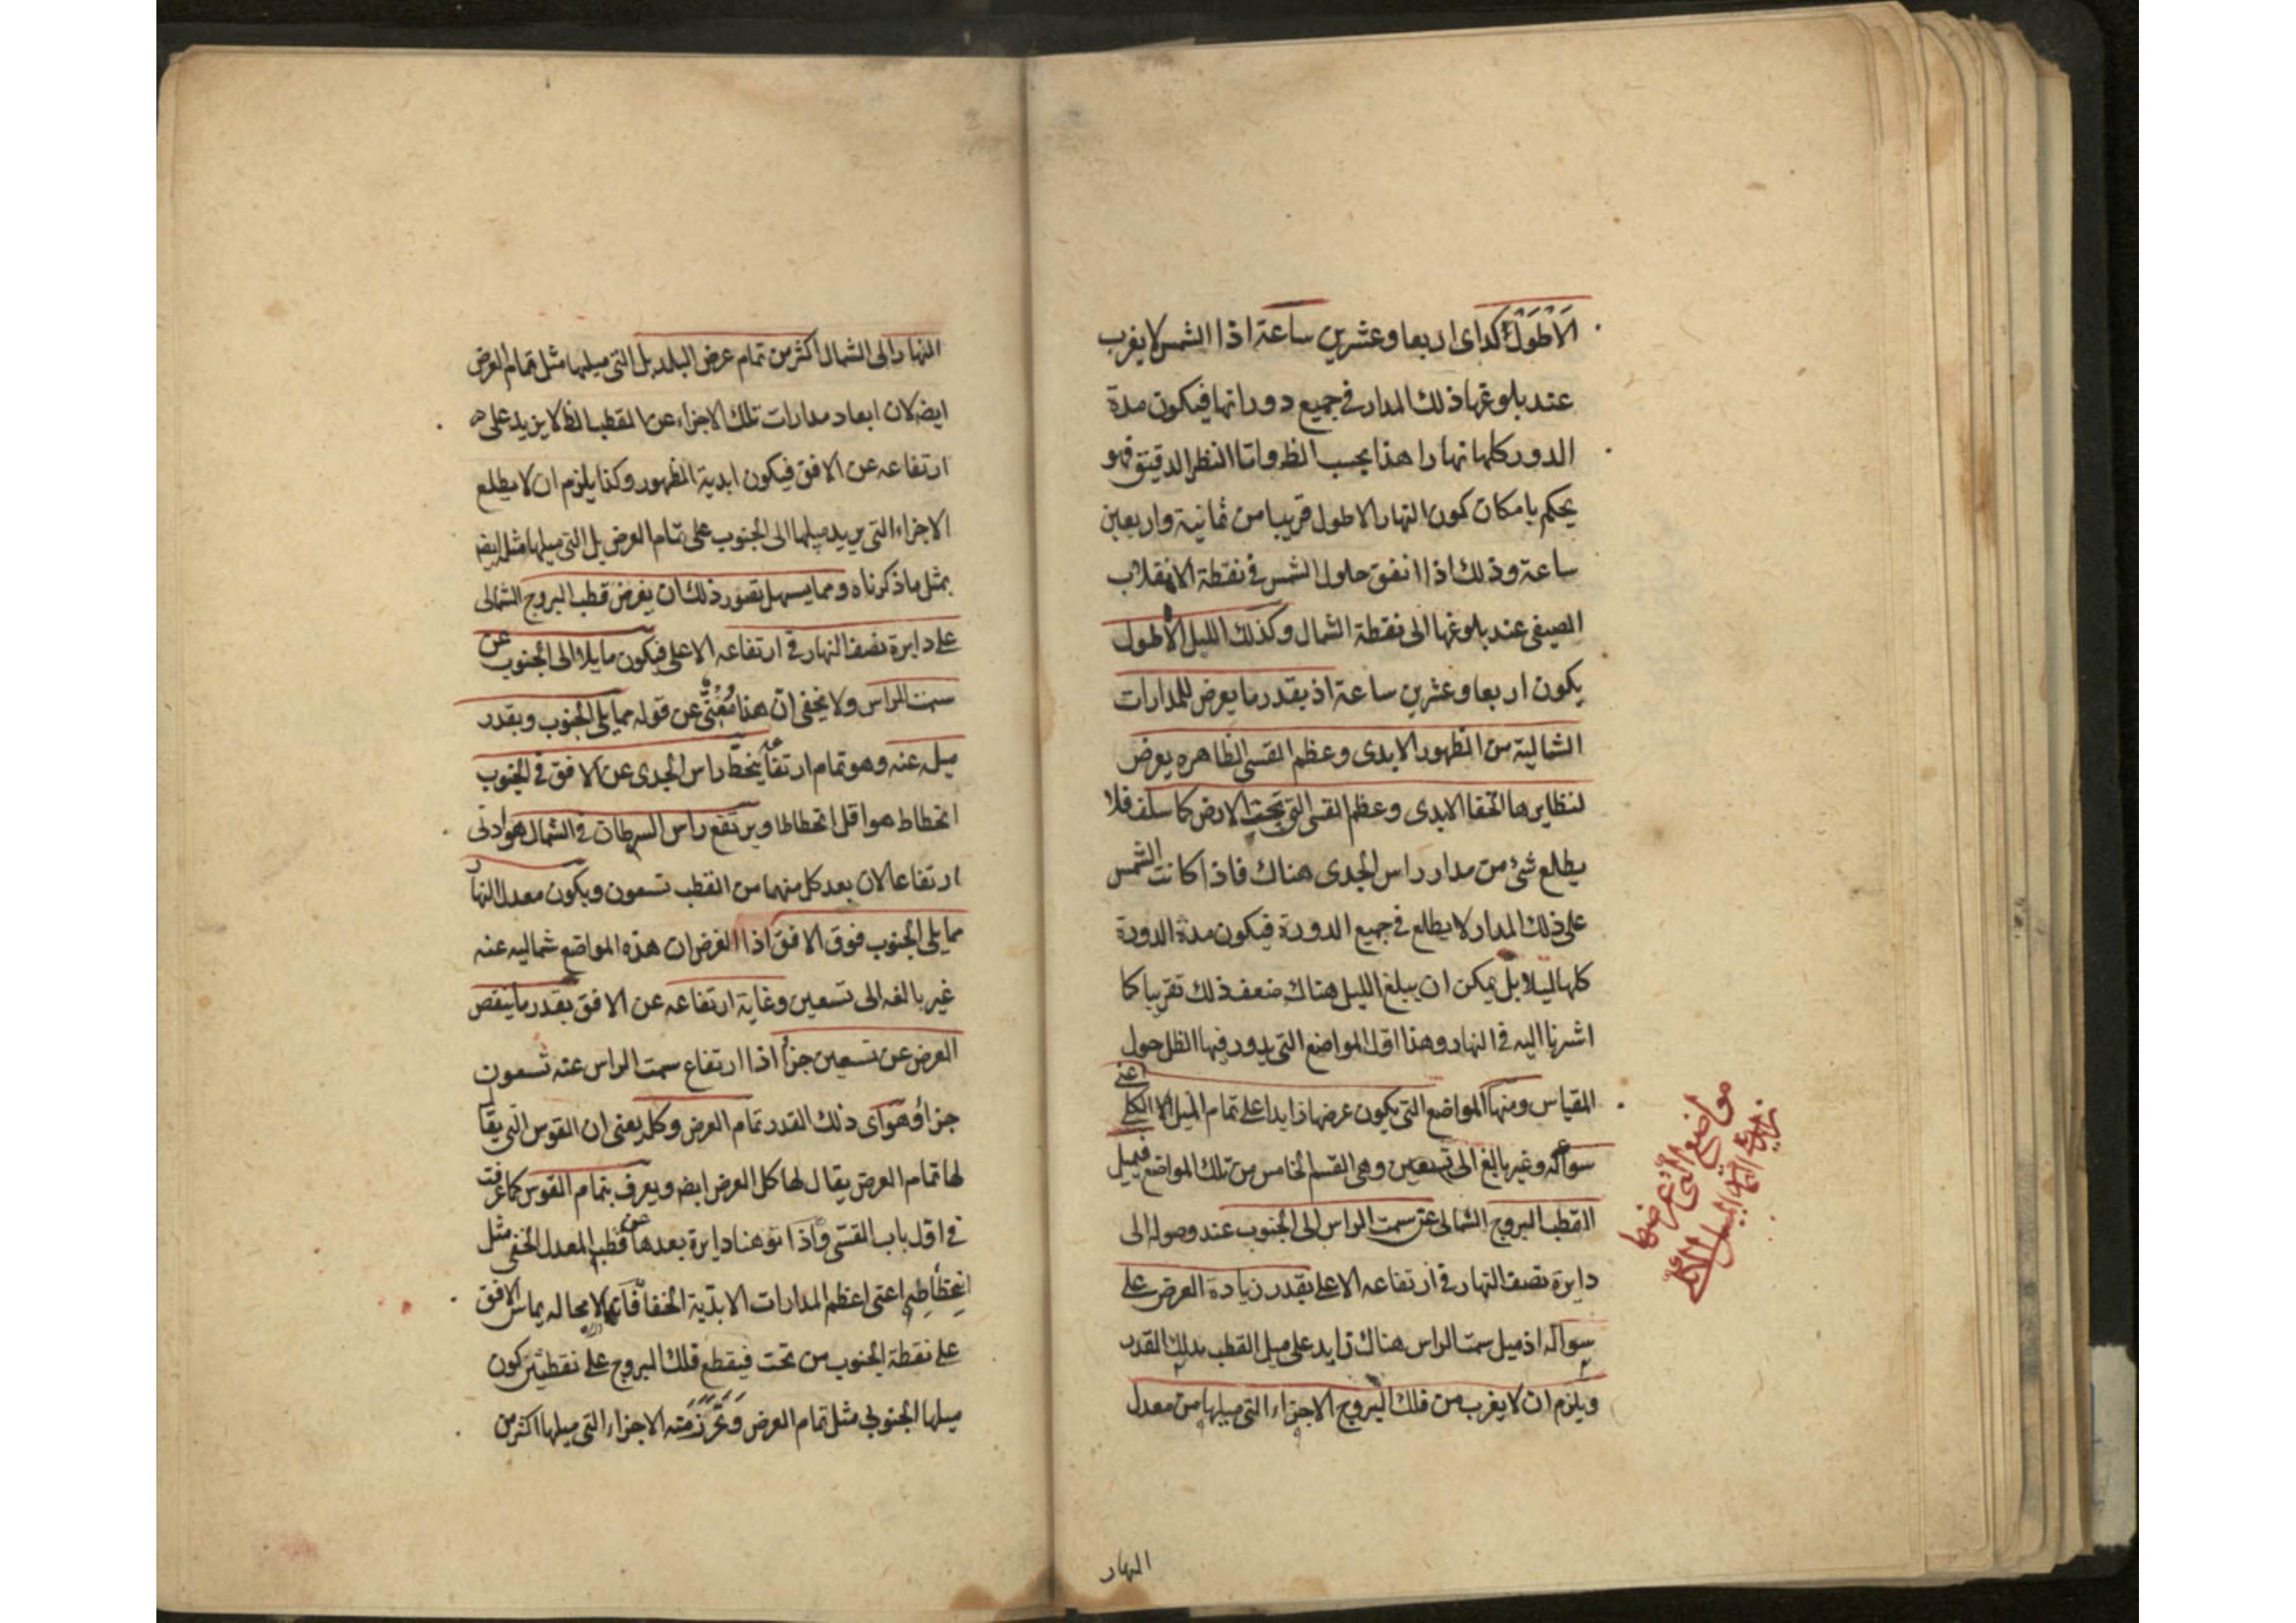 الاطول كذا اى اربعا وعشرين ساعة اذا الشمس لا يغرب
عند بلوغها ذلك المدار فى جميع دورانها فيكون مدة
الدور كلها نهارا هذا بحسب الظ واما النظر الدقيق فهو
يحكم بامكان كون النهار الاطول قريبا من ثمانية واربعين
ساعة وذلك اذا اتفق حلول الشمس فى نقطة الانقلاب
الصيفى عند بلوغها الى نقطة الشمال وكذلك الليل الاطول
يكون اربعا وعشرين ساعة اذ بقدر ما يعرض للمدارات
الشمالية من الظهور الابدى وعظم القسى الظاهره يعرض
لنظايرها الخفا الابدى وعظم القسى التى تحت الارض كما سلف فلا
يطلع شئ من مدار راس الجدى هناك فاذا كانت الشمس
على ذلك المدار لا يطلع فى جميع الدورة فيكون مدة الدورة
كلها ليلا بل يمكن ان يبلغ الليل هناك ضعف ذلك تقريبا كما
اشرنا اليه فى النهار وهذا اول المواضع التى يدور فيها الظل حول
المقياس ومنها المواضع التى يكون عرضها زايدا على تمام الميل الكلى اعنى
سوله وغير بالغ الى تسعين وهى القسم الخامس من تلك المواضع فيميل
القطب البروج الشمالى عن سمت الراس الى الجنوب عند وصوله الى
دايرة نصف النهار فى ارتفاعه الاعلى بقدر زيادة العرض على
سوله اذ ميل سمت الراس هناك زايد على ميل القطب بذلك القدر
ويلزم ان لا يغرب من فلك البروج الاجزاء التى ميلها من معدل
النهار
مواضع التى عرضها
النهار الى الشمال اكثر من تمام عرض البلد بل التى ميلها مثل تمام العرض
ايضه لان ابعاد مدارات تلك الاجزاء عن القطب الظ لا يزيد على
ارتفاعه عن الافق فيكون ابدية الظهور وكذا يلزم ان لا يطلع
الاجزاء التى يزيد ميلها الى الجنوب على تمام العرض بل التى ميلها مثله ايضه
بمثل ما ذكرناه ومما يسهل تصور ذلك ان يفرض قطب البروج الشمالى
على دايرة نصف النهار فى ارتفاعه الاعلى فيكون مايلا الى الجنوب عن
سمت الراس ولا يخفى ان هذا مغنى عن قوله مما يلى الجنوب وبقدر
ميله عنه وهو تمام ارتفاعه ينحط راس الجدى عن الافق فى الجنوب
انحطاط هو اقل انحطاطا ويرتفع راس السرطان فى الشمال هو ادنى
ارتفاعا لان بعد كل منهما من القطب تسعون ويكون معدل النهار
مما يلى الجنوب فوق الافق اذا الفرض ان هذه المواضع شماليه عنه
غير بالغه الى تسعين وغاية ارتفاعه عن الافق بقدر ما ينقص
العرض عن تسعين جزأ اذا ارتفاع سمت الراس عنه تسعون
جزأ وهو اى ذلك القدر تمام العرض وكله يعنى ان القوس التى يقال
لها تمام العرض يقال لها كل العرض ايضه ويعرف بتمام القوس كما عرفت
فى اول باب القسى واذا تو هنا دايرة بعدها عن قطب المعدل الخفى مثل
انحطاطه اعنى اعظم المدارات الابدية الخفا فانها لا محاله يماس الافق
على نقطة الجنوب من تحت فيقطع فلك البروج على نقطتين كون
ميلها الجنوبى مثل تمام العرض وتحرز منه الاجزاء التى ميلها اكثر من